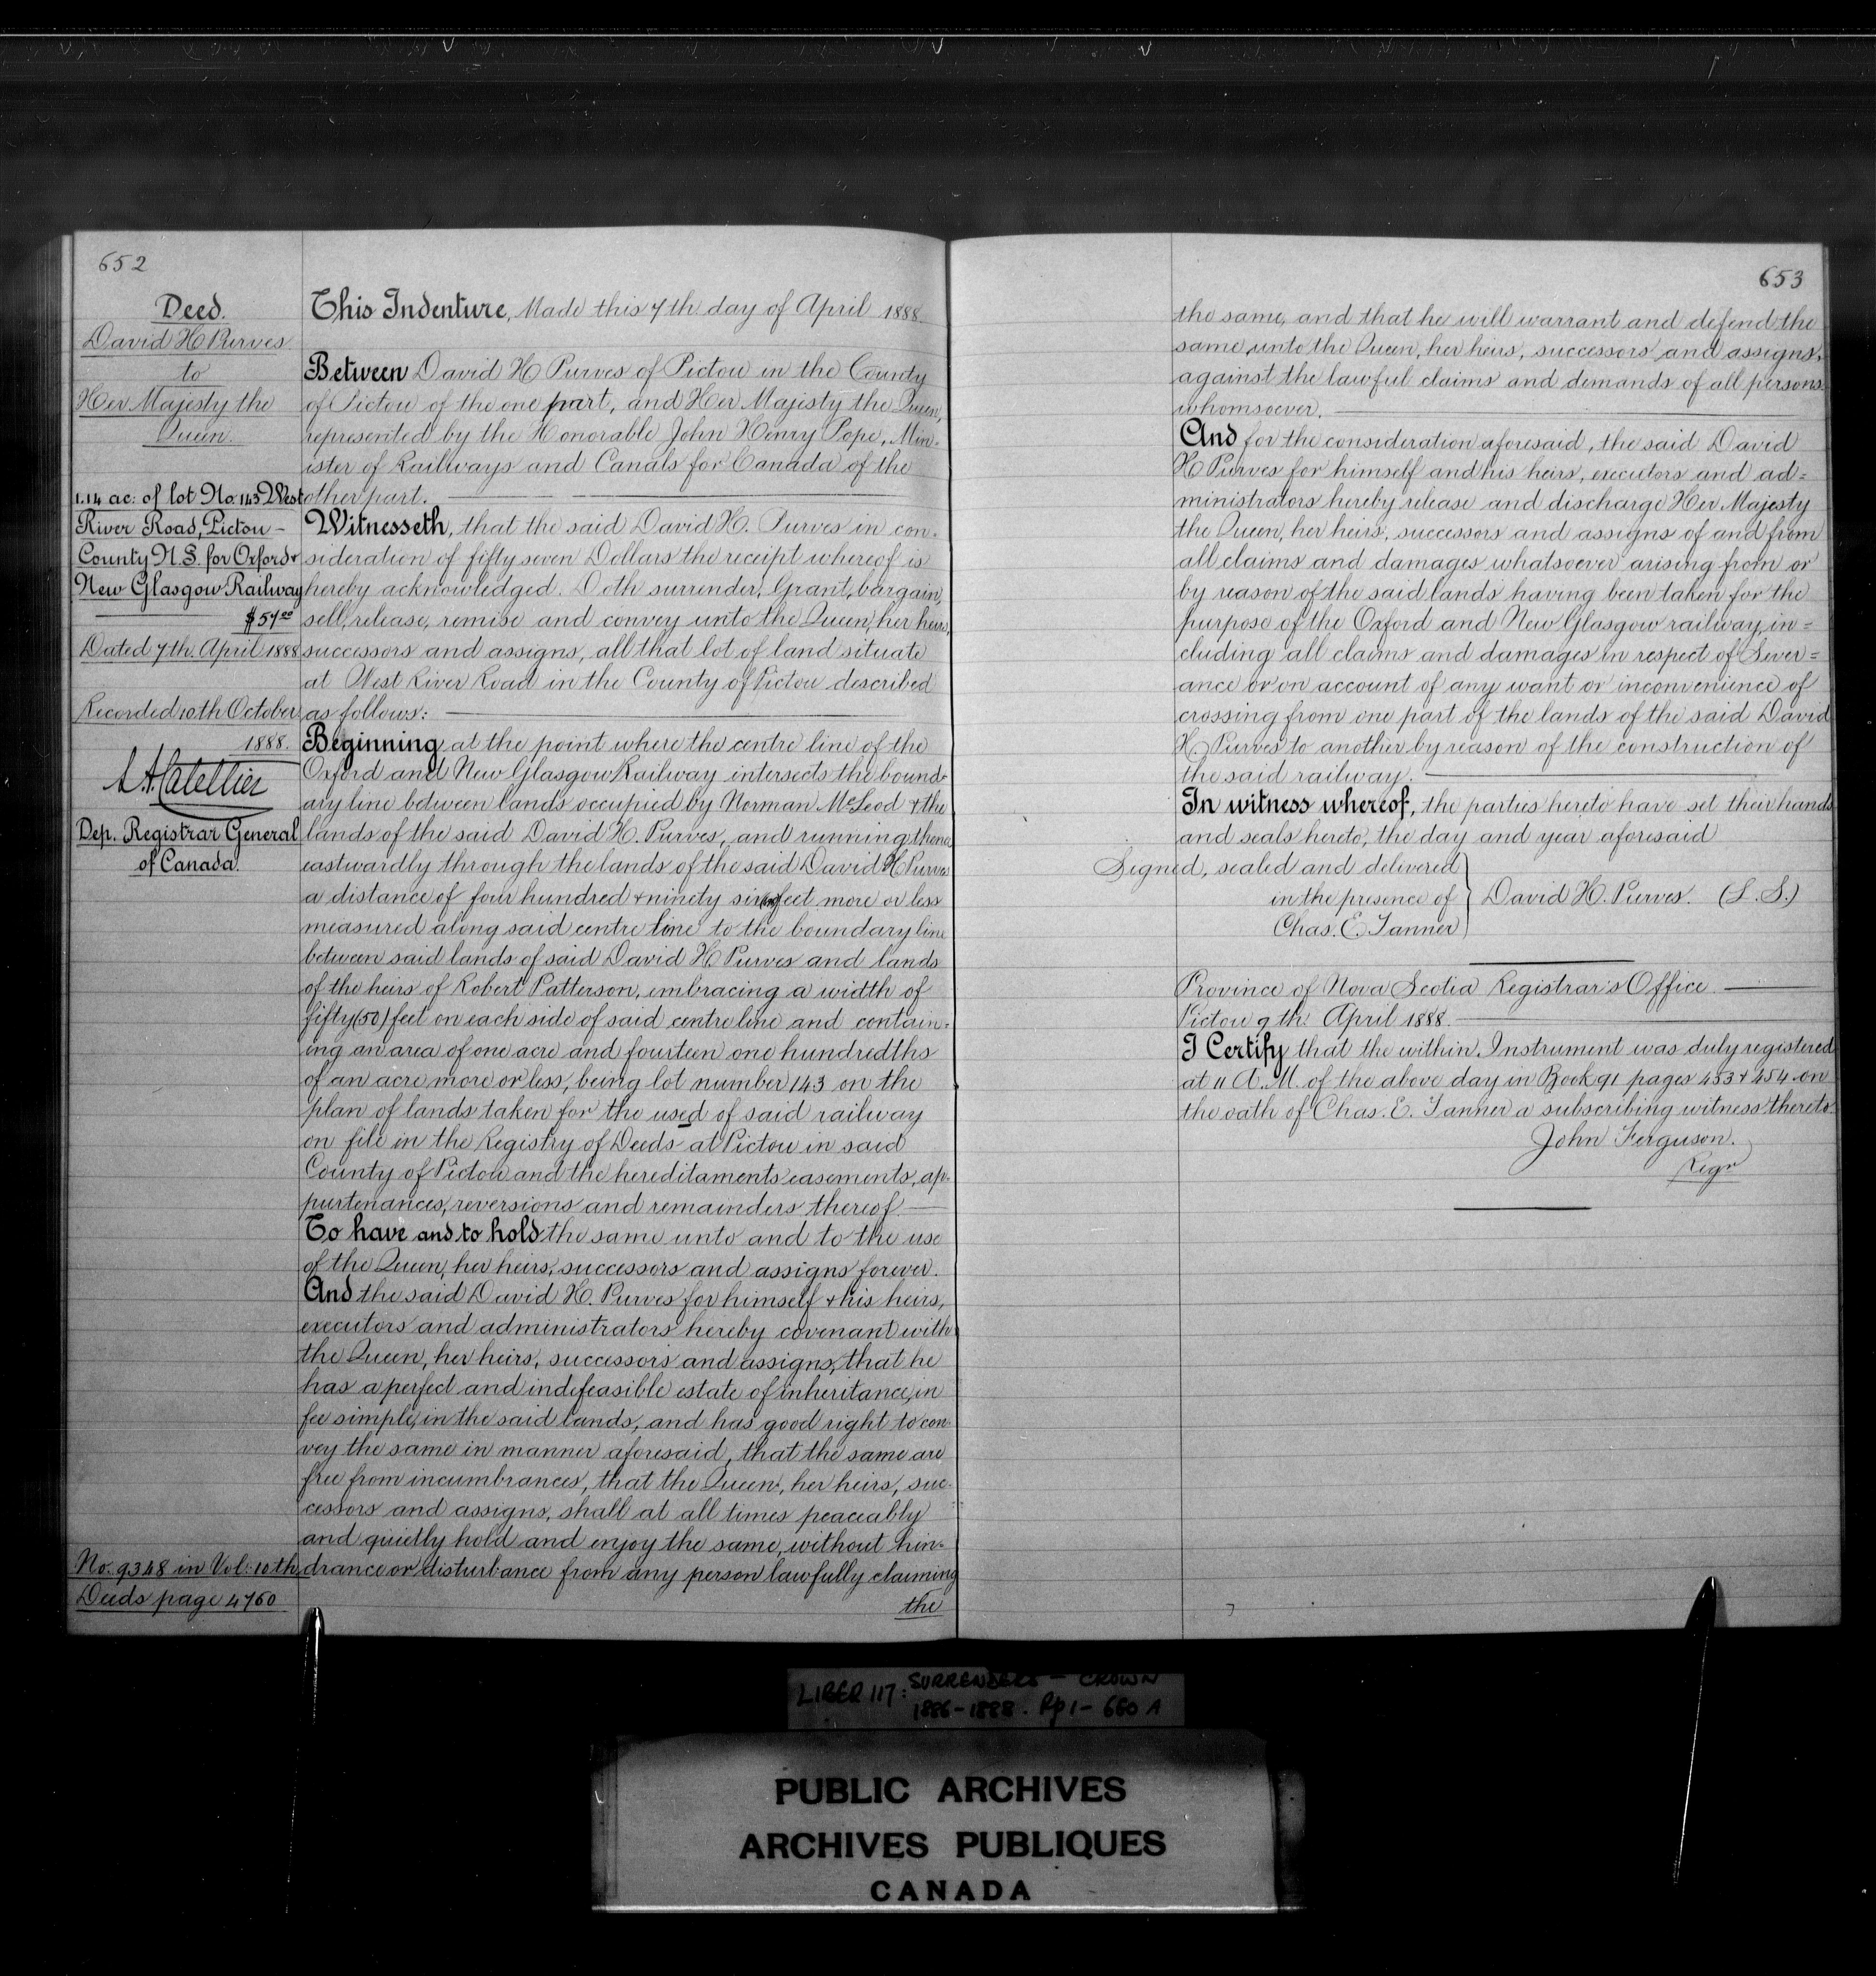 652
Deed.
David H Purves
to
Her Majesty the
Queen.
1.14 ac: of lot No. 143 West
River Road, Pictou -
County N.S. for Oxford &
New Glasgow Railway
$57.00
Dated 7th April 1888
Recorded 10th October
1888.
Dep. Registrar General
of Canada.
No. 9348 in Vol: 10th
Deeds page 4760
This Indenture, Made this 7th day of April 1888
Between David H Purves of Pictou in the County
of Pictou of the one part, and Her Majesty the Queen,
represented by the Honorable John Henry Pope, Min-
ister of Railways and Canals for Canada of the
other part.
Witnesseth, that the said David H. Purves in con-
sideration of fifty seven Dollars the receipt whereof is
hereby acknowledged. Doth surrender, Grant, bargain,
sell, release, remise and convey unto the Queen, her heirs,
successors and assigns, all that lot of land situate
at West River Road in the County of Pictou described
as follows:
Beginning at the point where the centre line of the
Oxford and New Glasgow Railway intersects the bound-
ary line between lands occupied by Norman McLeod & the
lands of the said David H. Purves, and running thence
eastwardly through the lands of the said David H Purves
a distance of four hundred & ninety six feet more or less
measured along said centre line to the boundary line
between said lands of said David H. Purves and lands
of the heirs of Robert Patterson, embracing a width of
fifty (50) feet on each side of said centre line and contain-
ing an area of one acre and fourteen one hundredths
of an acre more or less, being lot number 143 on the
plan of lands taken for the used of said railway
on file in the Registry of Deeds at Pictou in said
County of Pictou and the hereditaments easements, ap-
purtenances, reversions and remainders thereof
To have and to hold the same unto and to the use
of the Queen, her heirs, successors and assigns forever.
And the said David H. Purves for himself & his heirs,
executors and administrators hereby covenant with
the Queen, her heirs, successors and assigns, that he
has a perfect and indefeasible estate of inheritance, in
fee simple, in the said lands, and has good right to con-
vey the same in manner aforesaid, that the same are
free from incumbrances, that the Queen, her heirs, suc-
cessors and assigns, shall at all times peaceably
and quietly hold and enjoy the same, without hin-
drance or disturbance from any person lawfully claiming
the
653
the same, and that he will warrant and defend the
same unto the Queen, her heirs, successors and assigns,
against the lawful claims and demands of all persons
whomsoever.
And for the consideration aforesaid, the said David
H Purves for himself and his heirs, executors and ad=
ministrators hereby release and discharge Her Majesty
the Queen, her heirs, successors and assigns of and from
all claims and damages whatsoever arising from or
by reason of the said lands having been taken for the
purpose of the Oxford and New Glasgow railway, in=
cluding all claims and damages in respect of Sever=
ance or on account of any want or inconvenience of
crossing from one part of the lands of the said David
H. Purves to another by reason of the construction of
the said railway.
In witness whereof, the parties hereto have set their hands
and seals hereto, the day and year aforesaid
Signed, sealed and delivered
in the presence of } David H. Purves. (L.S.)
Chas. E. Tanner
Province of Nova Scotia Registrar's Office
Pictou 9th April 1888.
I Certify that the within Instrument was duly registered
at 11 A.M. of the above day in Book 91 pages 453 & 454 on
the oath of Chas. E. Tanner a subscribing witness thereto
John Ferguson.
Regr
LIBER 117: SURRENDERS - CROWN
1886-1888. Pp 1- 660 A
PUBLIC ARCHIVES
ARCHIVES PUBLIQUES
CANADA